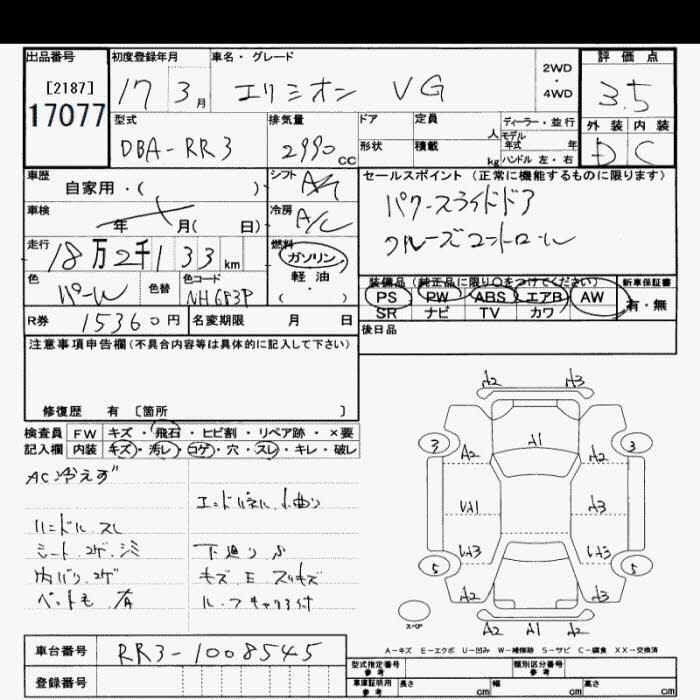 出品番号 初度登録年月 車名・グレード 評価点
[2187]
17077
17 3月 エリシオン VG
2WD
・
4WD
3.5
外装 内装
D C
型式 排気量 ドア 定員 ディーラー・並行
DBA-RR3 2990cc
人 モデル年式 年
形状 積載 kg ハンドル 左・右
車歴 シフト セールスポイント(正常に機能するものに限ります)
自家用・( )
パワースライドドア
クルーズコントロール
車検 冷房
年 月( 日) A/C
走行 燃料
18万2千133km ガソリン
軽油
( ・ )
色 色替 色コード
パール NH683P
装備品(純正品に限り○をつけてください) 新車保証書
PS PW ABS エアB AW 有・無
SR ナビ TV カワ
R券 15360円 名変期限 月 日
後日品
注意事項申告欄(不具合内容等は具体的に記入して下さい)
修復歴 有 [箇所 ]
検査員 FW キズ・飛石・ヒビ割・リペア跡・×要
記入欄 内装 キズ・汚レ・コゲ・穴・スレ・キレ・破レ
AC冷えず
エンドパネル小曲り
ハンドル.スレ
シート.コゲ.シミ
下廻りS
内バリ.コゲ
キズ E スリキズ
ペット毛 有
ルーフキャリア付
A2 A3
3 A2 A1 A2 3
UA1 A3
UA3 UA3
5 A2 A3 5
スペア
A2 A1 A2
A-キズ E-エクボ U-凹み W-補修跡 S-サビ C-腐食 XX-交換済
車台番号 RR3-1008545
登録番号
型式指定番号 参考 類別区分番号 参考
車庫証明用 参考 長さ cm 幅 cm 高さ cm